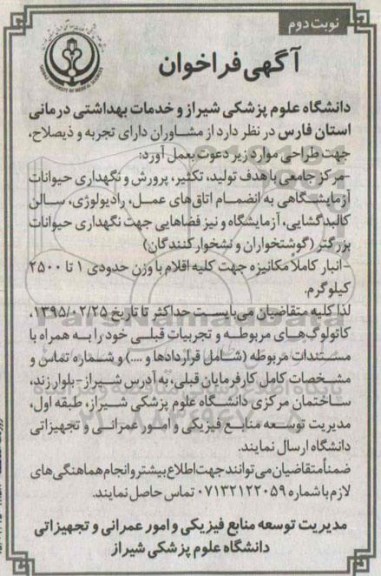 نوبت دوم
آگهی فراخوان
دانشگاه علوم پزشکی شیراز و خدمات بهداشتی درمانی
استان فارس در نظر دارد از مشاوران دارای تجربه و ذیصلاح،
جهت طراحی موارد زیر دعوت بعمل آورد:
-مرکز جامعی با هدف تولید، تکثیر، پرورش و نگهداری حیوانات
آزمایشگاهی به انضمام اتاق‌های عمل، رادیولوژی، سالن
کالبدگشایی، آزمایشگاه و نیز فضاهایی جهت نگهداری حیوانات
بزرگتر (گوشتخواران و نشخوارکنندگان)
-انبار کاملاً مکانیزه جهت کلیه اقلام با وزن حدودی ۱ تا ۲۵۰۰
کیلوگرم.
لذا کلیه متقاضیان می‌بایست حداکثر تا تاریخ ۱۳۹۵/۰۲/۲۵،
کاتولوگ‌های مربوطه و تجربیات قبلی خود را به همراه با
مستندات مربوطه (شامل قراردادها و ....) و شماره تماس و
مشخصات کامل کارفرمایان قبلی، به آدرس شیراز-بلوار زند،
ساختمان مرکزی دانشگاه علوم پزشکی شیراز، طبقه اول،
مدیریت توسعه منابع فیزیکی و امور عمرانی و تجهیزاتی
دانشگاه ارسال نمایند.
ضمناً متقاضیان می‌توانند جهت اطلاع بیشتر و انجام هماهنگی های
لازم با شماره ۰۷۱۳۲۱۲۲۰۵۹ تماس حاصل نمایند.
مدیریت توسعه منابع فیزیکی و امور عمرانی و تجهیزاتی
دانشگاه علوم پزشکی شیراز